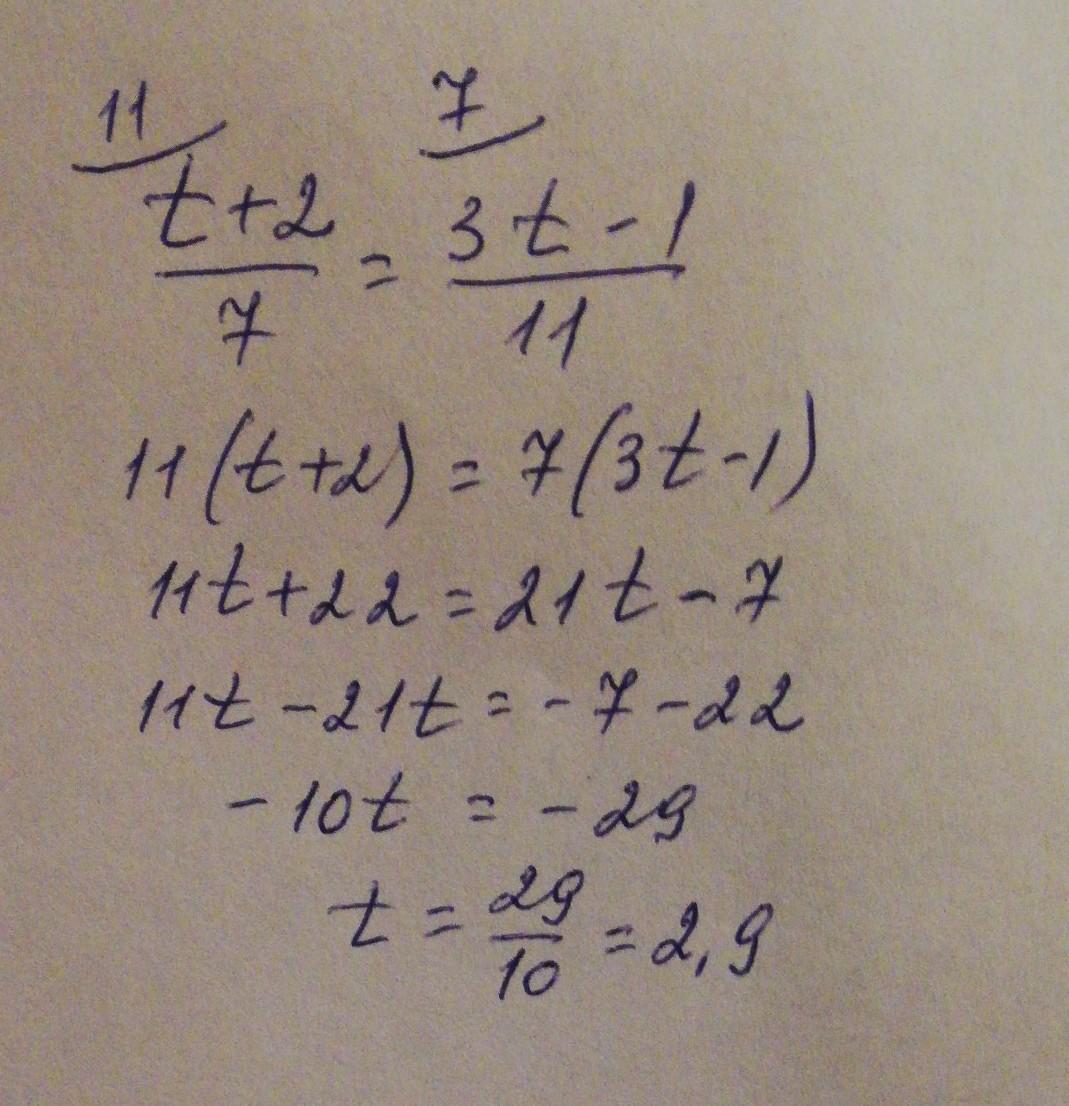 11 7
t+2 = 3t-1
7 11
11(t+2) = 7(3t-1)
11t+22=21t-7
11t-21t=-7-22
-10t = -29
t = 29/10 = 2,9